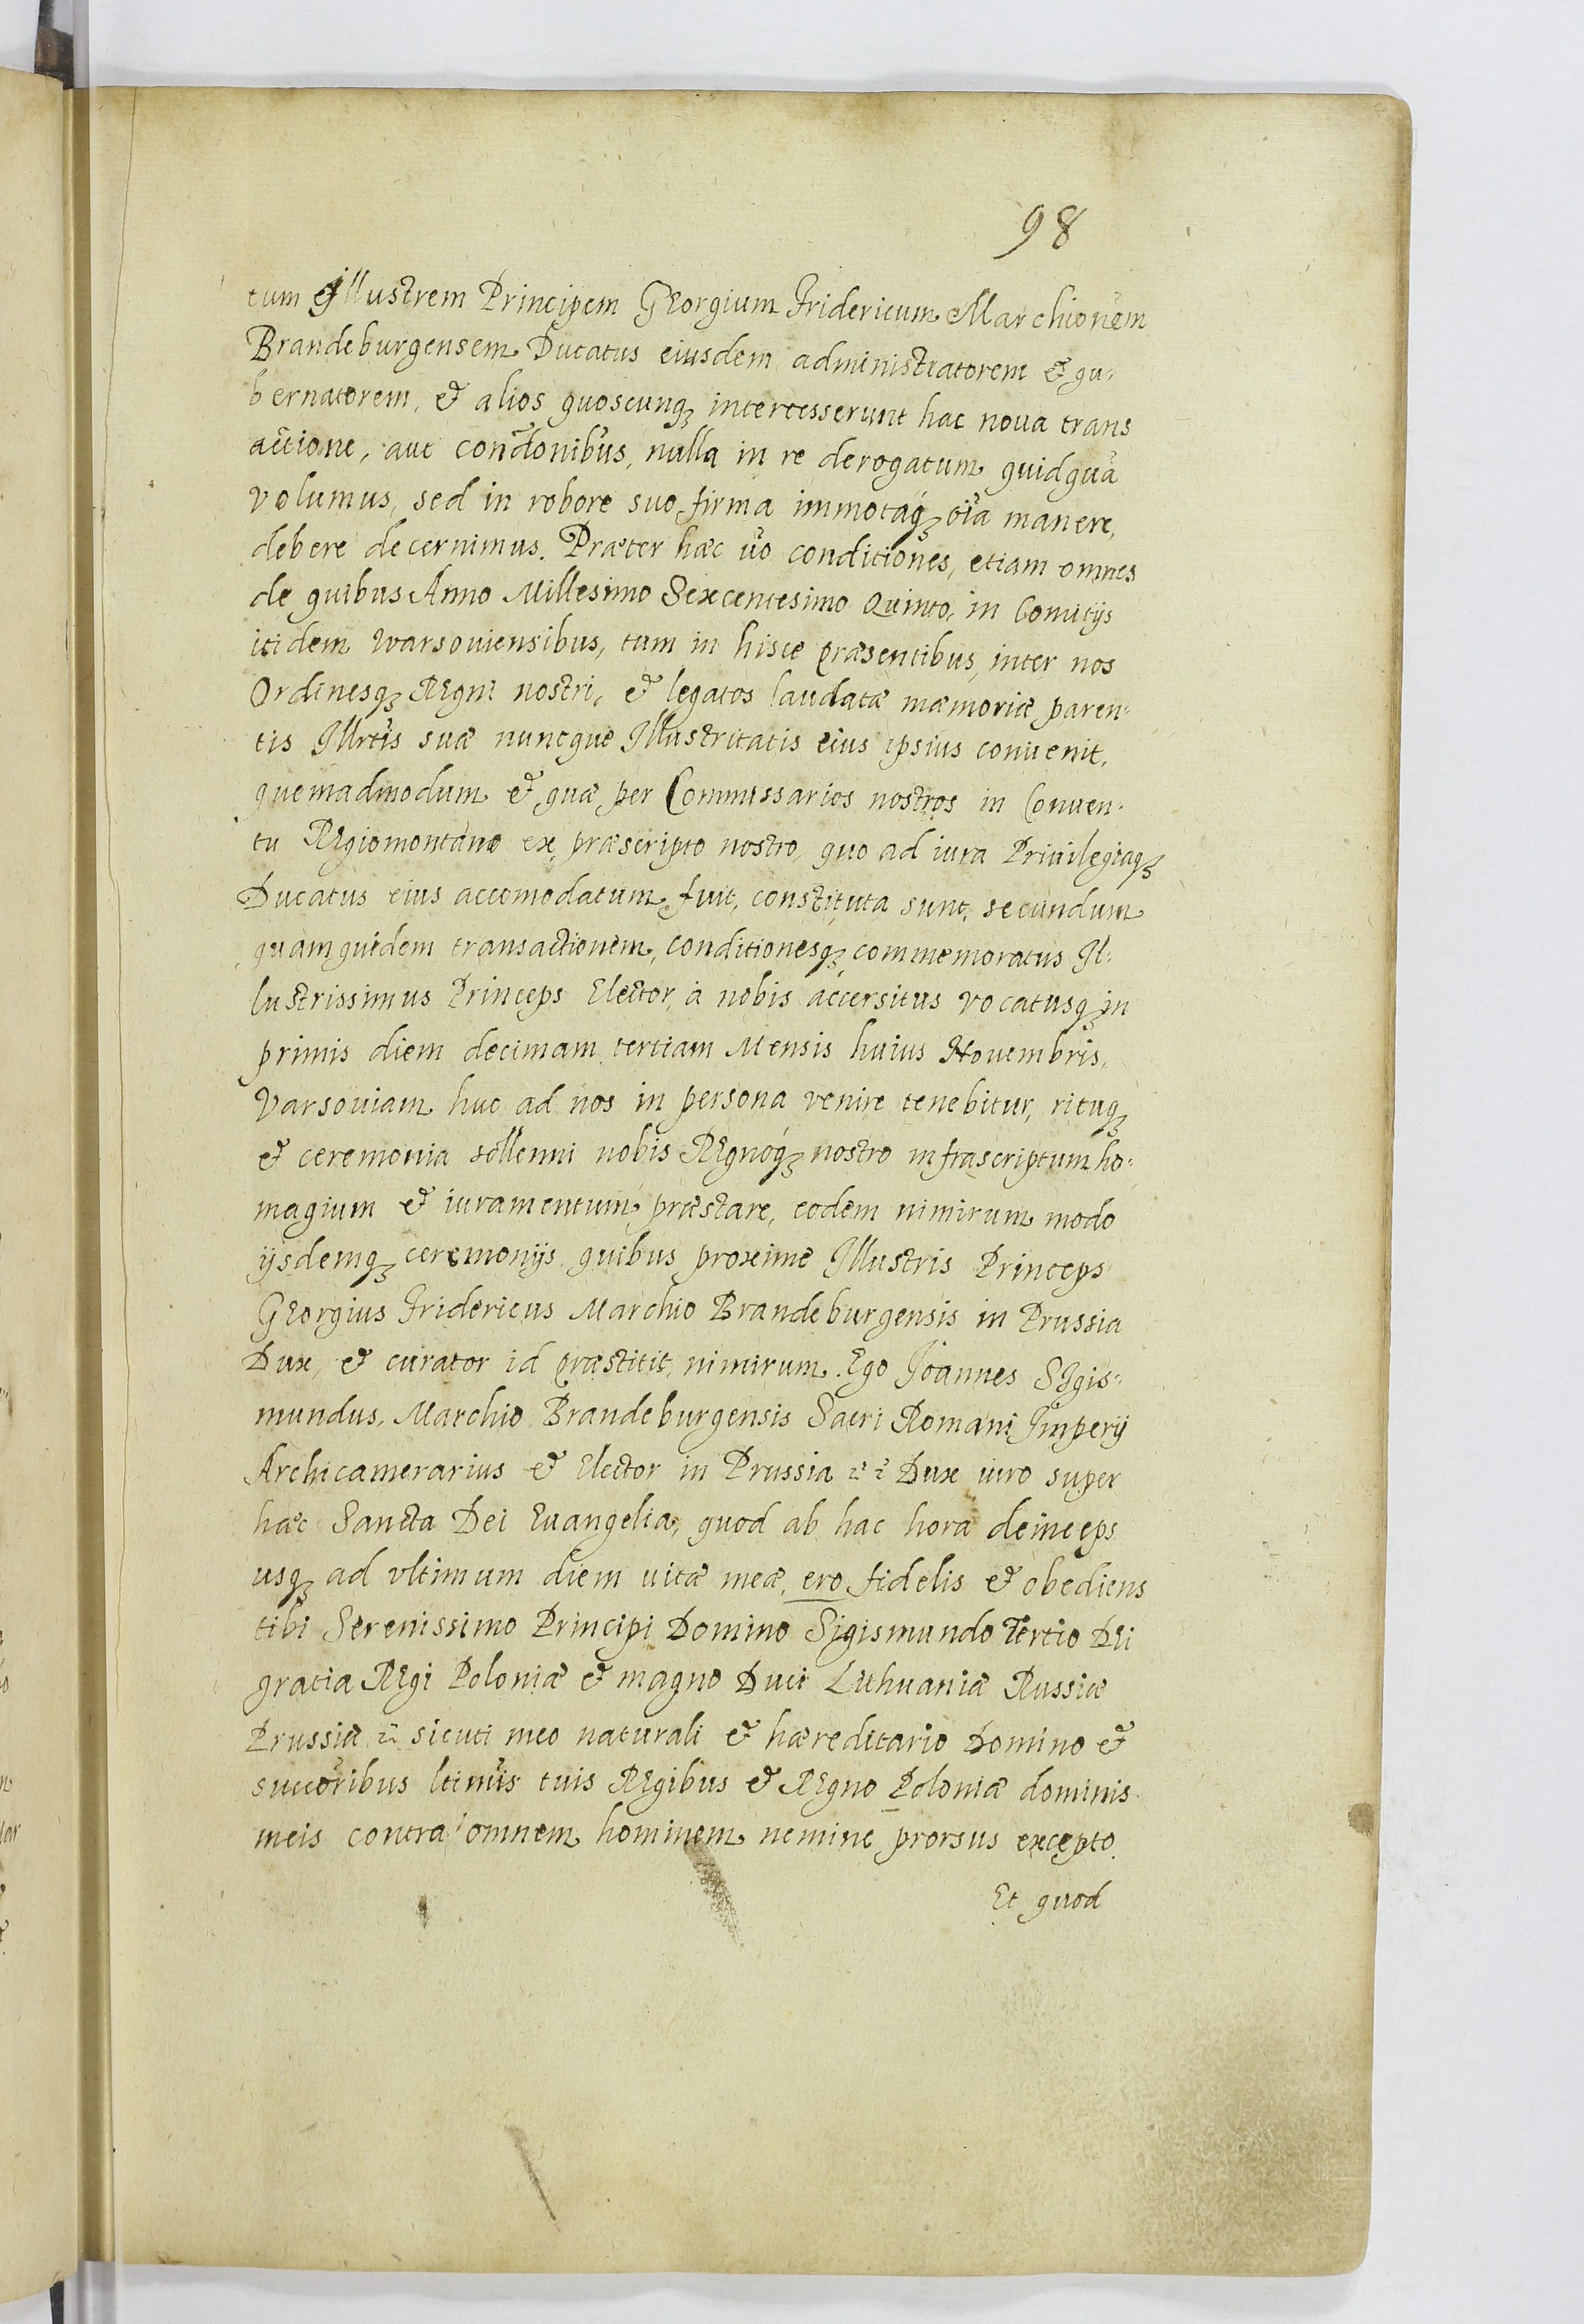 98
tum Illustrem Principem Georgium Fridericum Marchionem
Brandeburgensem Ducatus eiusdem administratorem et gu-
bernatorem, et alios quoscunq₃ intercesserunt hac noua trans
actione, aut condõnibus, nulla in re derogatum quidquã
volumus, sed in robore suo firma immotaq₃ oĩa manere,
debere decernimus. Præter hæc uo conditiones, etiam omnes
de quibus Anno Millesimo Sexcentesimo Quinto, in Comitijs
itidem Warsouiensibus, tum in hisce præsentibus, inter nos
Ordinesq₃ Regni nostri, et legatos laudatæ mæmoriæ paren-
tis Illrtis suæ nuncque Illustritatis eius ipsius conuenit,
quemadmodum et quæ per Commissarios nostros in Conuen-
tu Regiomontano ex præscripto nostro, quo ad iura Priuilegiaq₃
Ducatus eius accomodatum fuit, constituta sunt, secundum
quam quidem transactionem, conditionesq₃ commemoratus Il-
lustrissimus Princeps Elector, à nobis accersitus vocatusq₃ in
primis diem decimam tertiam Mensis huius Nouembris,
Varsouiam huc ad nos in persona venire tenebitur, rituq₃
et ceremonia sollenni nobis Regnoq₃ nostro infrascriptum ho-
magium et iuramentum præstare, eodem nimirum modo
ijsdemq₃ ceremonijs quibus proxime Illustris Princeps
Georgius Fridericus Marchio Brandeburgensis in Prussia
Dux, et curator id præstitit, nimirum. Ego Joannes Sigis-
mundus, Marchio Brandeburgensis Sacri Romani Imperij
Archicamerarius et Elector in Prussia Dux iuro super
hæc Sancta Dei Euangelia, quod ab hac hora deinceps
usq₃ ad vltimum diem uitæ meæ, ero fidelis et obediens
tibi Serenissimo Principi Domino Sigismundo Tertio Dei
gratia Regi Poloniæ et magno Duci Lithuaniæ Russiæ
Prussiæ sicuti meo naturali et hæreditario Domino et
succoribus ltimis tuis Regibus et Regno Poloniæ dominis
meis contra omnem hominem nemine prorsus excepto.
Et quod